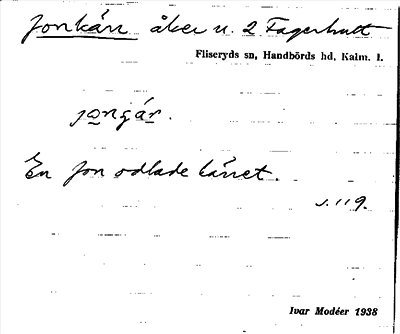 Jonkärr åker u. 2 Fagerhult
Fliseryds sn, Handbörds hd, Kalm. l.
En Jon odlade kärret.
s. 119.
Ivar Modéer 1938